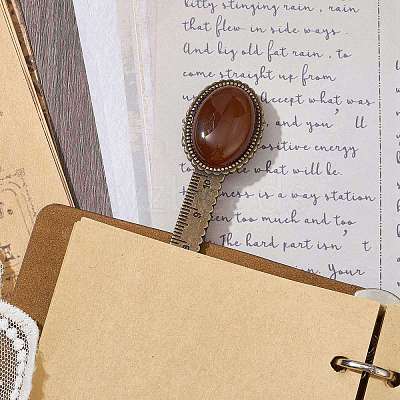 kitty stinging rain, rain
that flew in side ways.
And big old fat rain, to
come straight up from
Accept what was
and you'll
positive energy
to what will be.
is a way station
too much and too
The hard part isn't
Your